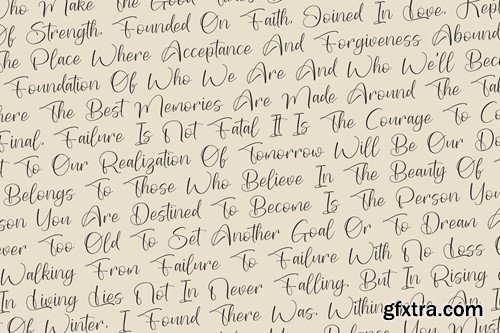 Who Make The Good Times
Of Strength. Founded On Faith, Joined In Love, Kept
The Place Where Acceptance And Forgiveness Abound
Foundation Of Who We Are And Who We'll Bec
here The Best Memories Are Made Around The Tab
Final, Failure Is Not Fatal It Is The Courage To Co
t To Our Realization Of Tomorrow Will Be Our Do
Belongs To Those Who Believe In The Beauty Of
son You Are Destined To Become Is The Person You
ever Too Old To Set Another Goal Or To Dream A
Walking From Failure To Failure With No Loss
In Living Lies Not In Never Falling, But In Rising
Of Winter, I Found There Was, Within An In
gfxtra.com